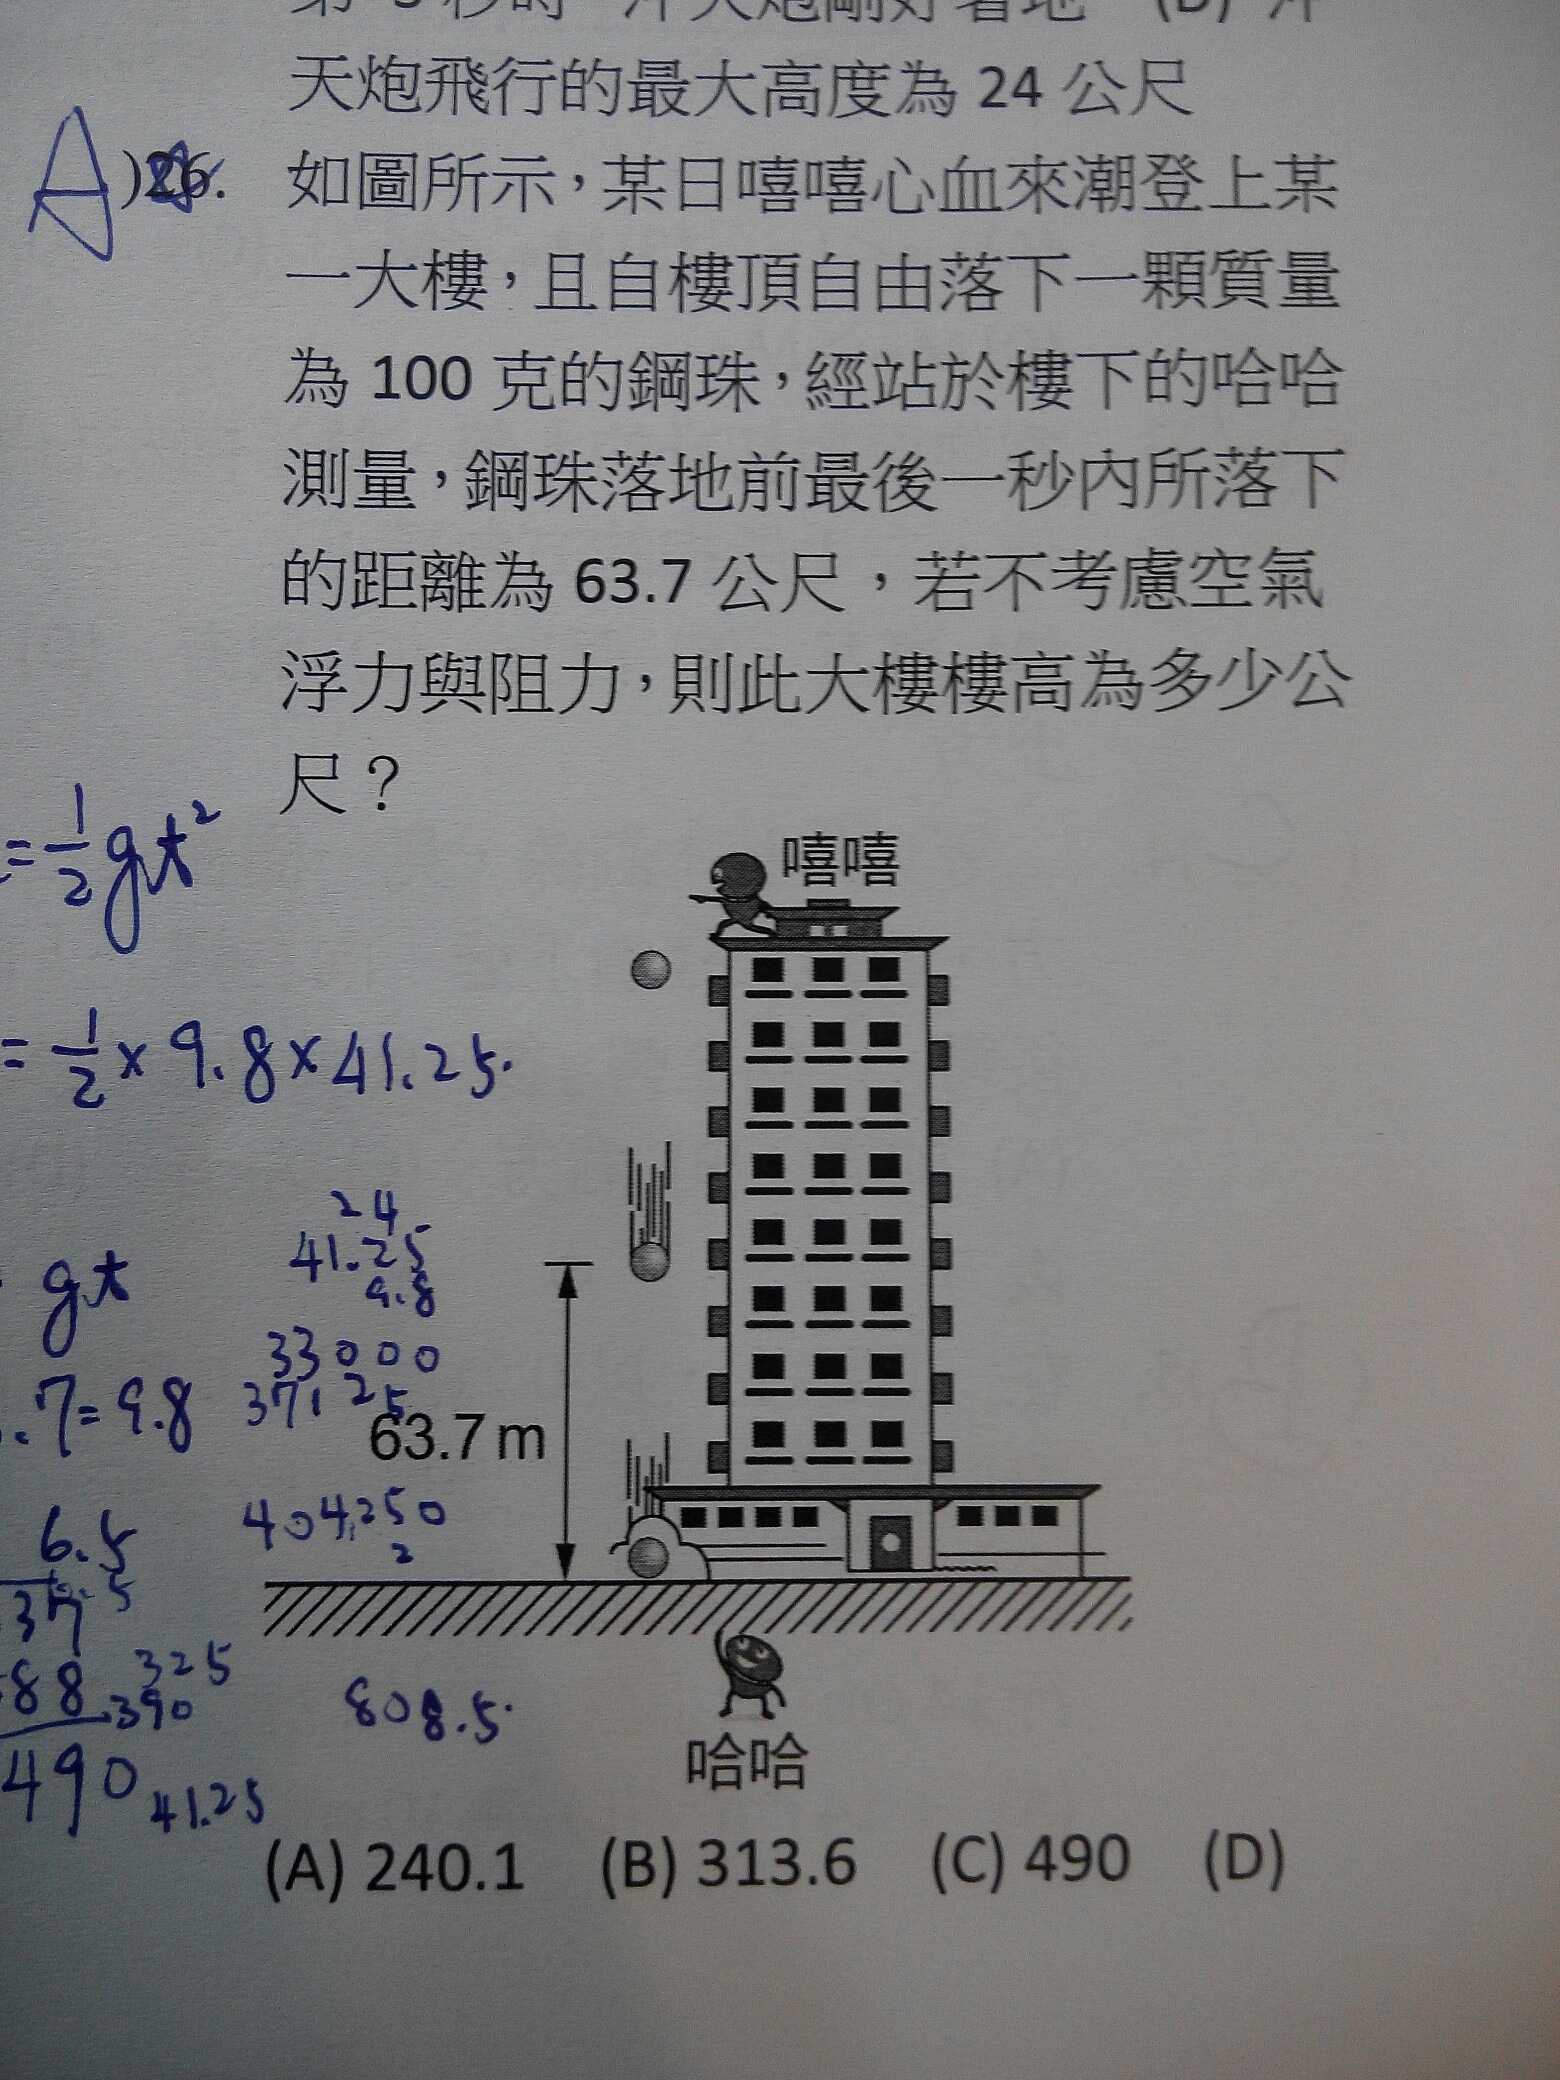 天炮飛行的最大高度為 24 公尺
A )26. 如圖所示，某日嘻嘻心血來潮登上某
一大樓，且自樓頂自由落下一顆質量
為 100 克的鋼珠，經站於樓下的哈哈
測量，鋼珠落地前最後一秒內所落下
的距離為 63.7 公尺，若不考慮空氣
浮力與阻力，則此大樓樓高為多少公
尺？
= 1/2 gt²
嘻嘻
= 1/2 × 9.8 × 41.25.
24
41.25
9.8
gt
33000
.7=9.8
37125
63.7 m
404250
2
6.5
325
88
390
808.5
490
41.25
哈哈
(A) 240.1 (B) 313.6 (C) 490 (D)